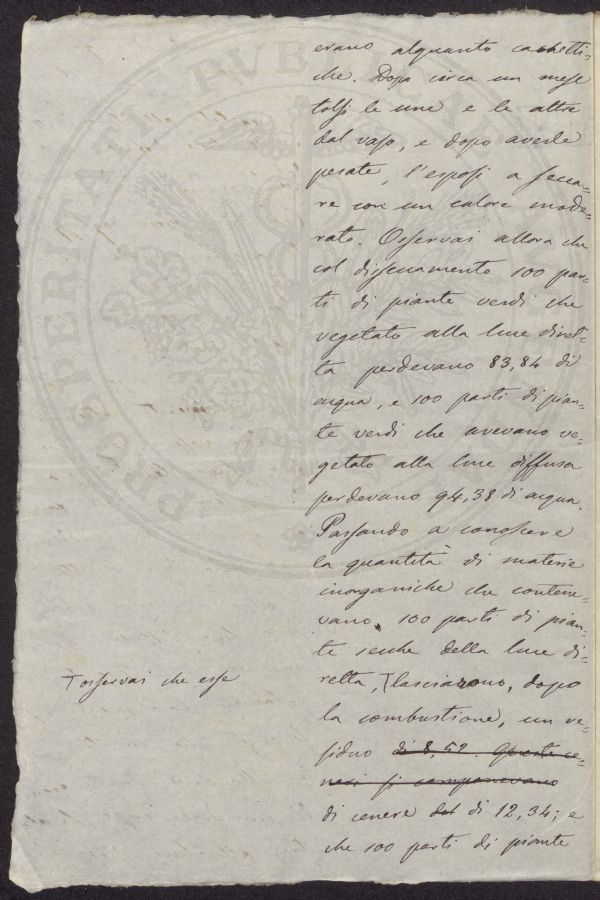 erano alquanto cachetti=
che. Dopo circa un mese
tolsi le une e le altre
dal vaso, e dopo averle
pesate, l'esposi a secca=
re con un calore mode=
rato. Osservai allora che
col disseccamento 100 par=
ti di piante verdi che
vegetato alla luce diret=
ta perdevano 83,84 di
acqua, e 100 parti di pian=
te verdi che avevano ve=
getato alla luce diffusa
perdevano 94,38 di acqua.
Passando a conoscere
la quantità di materie
inorganiche che contene=
vano, 100 parti di pian=
te secche della luce di=
retta, lasciarono, dopo
la combustione, un re=
siduo di 8,52. Queste ce=
neri si componevano
di cenere del di 12,34; e
che 100 parti di piante
osservai che esse
PROSPERITATIS PUBLICAE